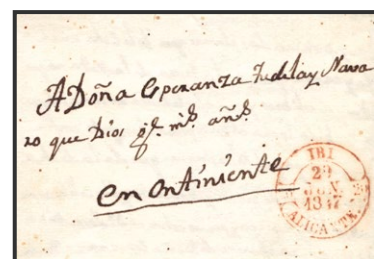 A Doña Esperanza Tudelay Nava
ro que Dios g.e m.s añ.s
en Ontiniente
IBI
29
JUN.
1847
ALICANTE.